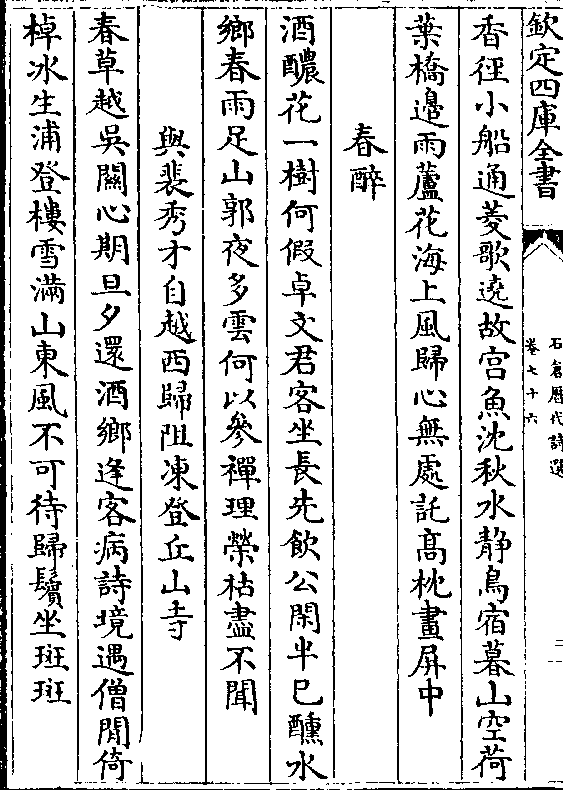 欽定四庫全書
石倉歷代詩選
卷七十六
二
香徑小船通菱歌遶故宫魚沈秋水静鳥宿暮山空荷
葉橋邉雨蘆花海上風歸心無處託髙枕畫屏中
春醉
酒醲花一樹何假卓文君客坐長先飲公閑半已醺水
鄉春雨足山郭夜多雲何以參禪理榮枯盡不聞
與裴秀才自越西歸阻凍登丘山寺
春草越吳闗心期旦夕還酒鄉逢客病詩境遇僧閒倚
棹冰生浦登樓雪滿山東風不可待歸鬢坐斑斑